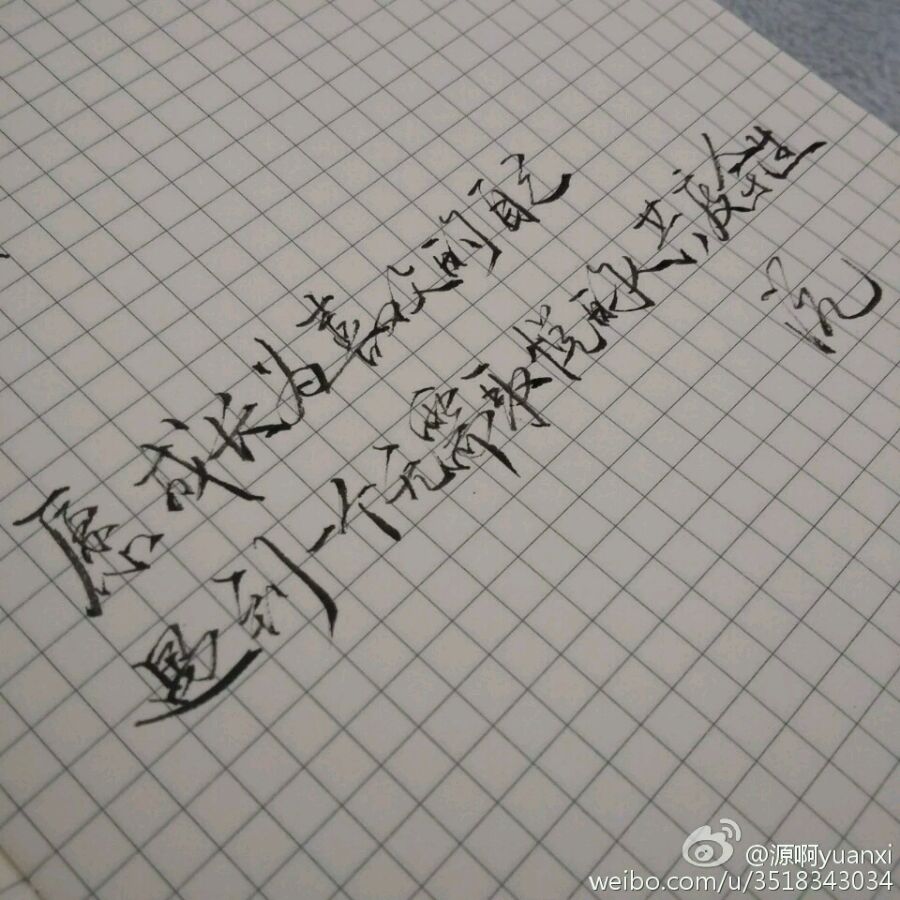 愿成长为喜欢的自己
遇到一个无需取悦的人共度余生
@源啊yuanxi
weibo.com/u/3518343034